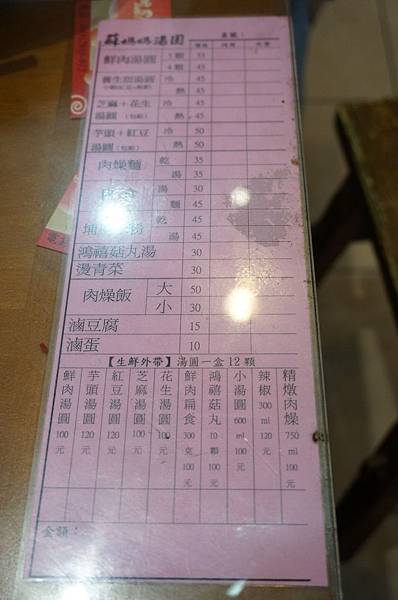 蘇媽媽湯圓 桌號：
價格 內用 外帶
鮮肉湯圓 5顆 55
4顆 45
養生甜湯圓 冷 45
熱 45
芝麻+花生 冷 45
湯圓（包餡） 熱 45
芋頭+紅豆 冷 50
湯圓（包餡） 熱 50
肉燥麵 乾 35
湯 35
食 湯 30
麵 45
埔 粉 乾 45
湯 45
鴻禧菇丸湯 30
燙青菜 30
肉燥飯 大 50
小 30
滷豆腐 15
滷蛋 10
【生鮮外帶】湯圓一盒12顆
鮮肉湯圓100元
芋頭湯圓120元
紅豆湯圓120元
芝麻湯圓100元
花生湯圓100元
鮮肉扁食300克100元
鴻禧菇丸10顆100元
小湯圓600ml100元
辣椒300ml120元
精燉肉燥750ml100元
金額：